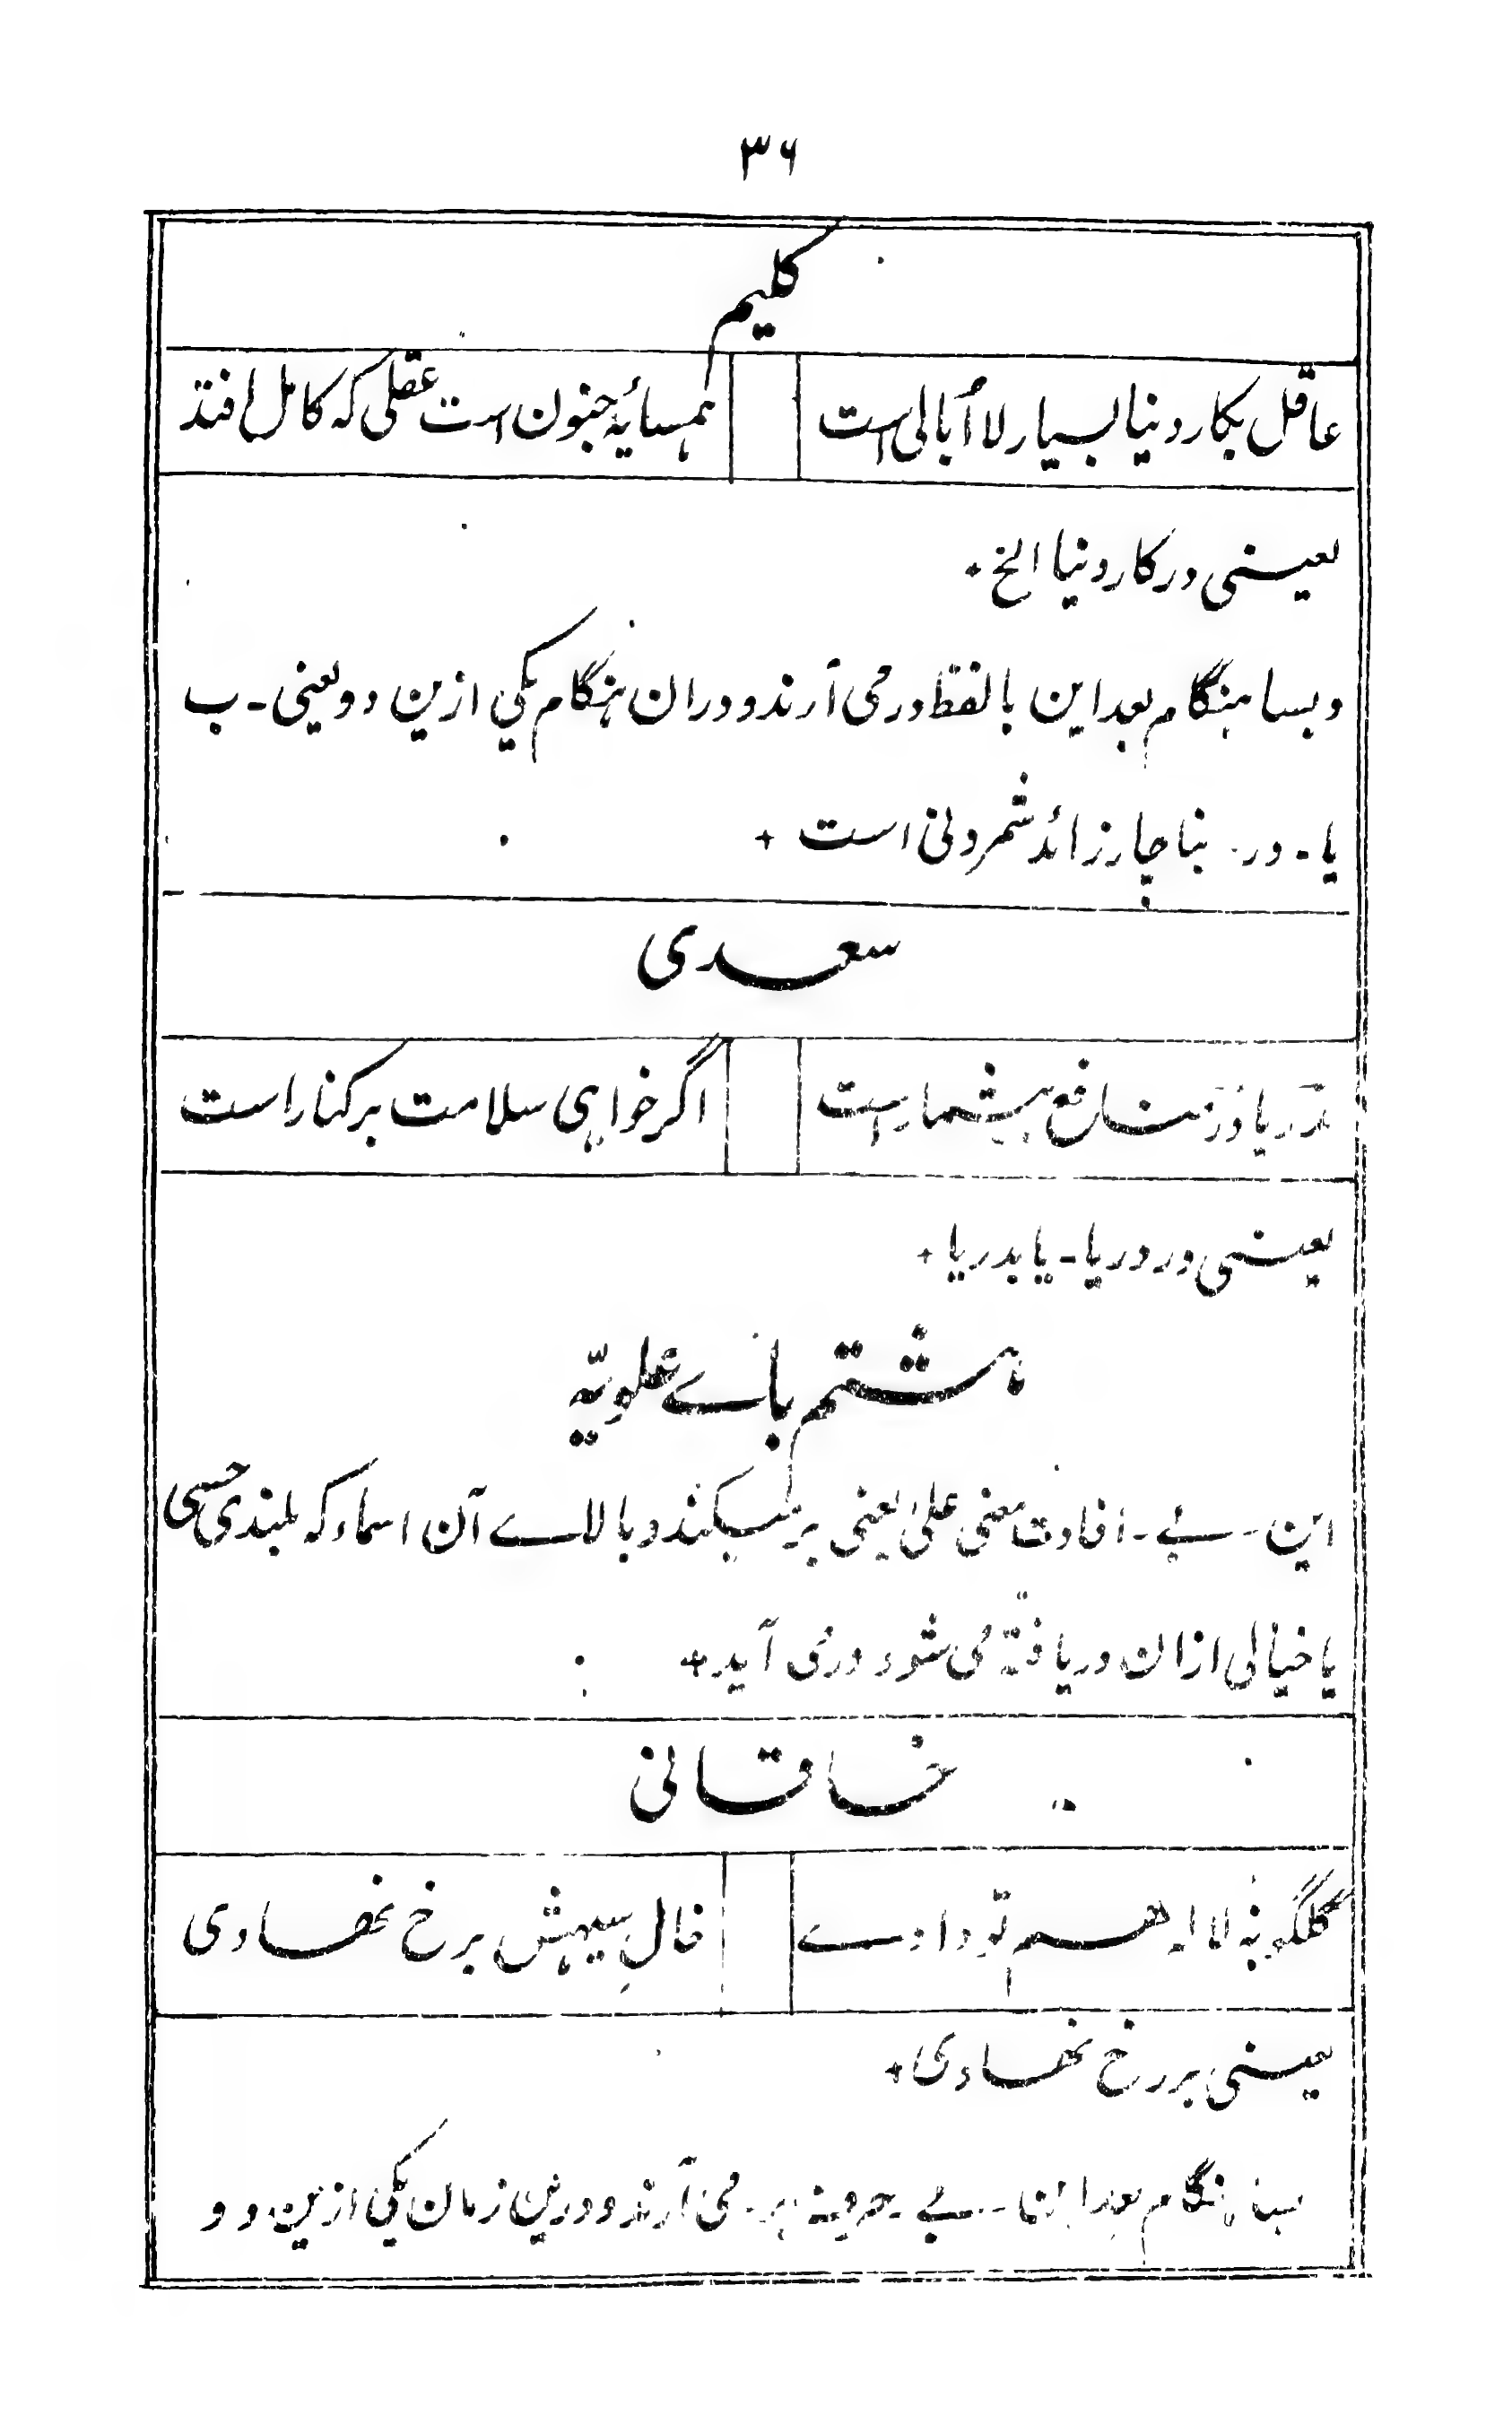 ۳۶
کلیم
عاقل بکار دنیا بسیار لا اُبالی است همسایۂ جنون است عقلی که کامل افتد
یعنی در کار دنیا الخ +
و بسا هنگام بعد این با لفظ در می آرند و دران هنگام یکی ازین دو یعنی - ب
یا - در - بناچار زائد شمردنی است +
سعدی
بدریا در منافع بیشمار است اگر خواهی سلامت بر کنار است
یعنی در دریا - یا بدریا +
هشتم باے علویّه
این - بے - افادت معنی علیٰ یعنی بر میکند و بالاے آن اسماء که بلندی حسی
یا خیالی ازان دریافته می شود در می آید +
خاقانی
گلگونۂ لاله هم تو دادے خالِ سیهش برخ نهادی
یعنی بر رخ نهادی +
بسا هنگام بعد این - بے - حرف بر - می آرند و درین زمان یکی ازین دو